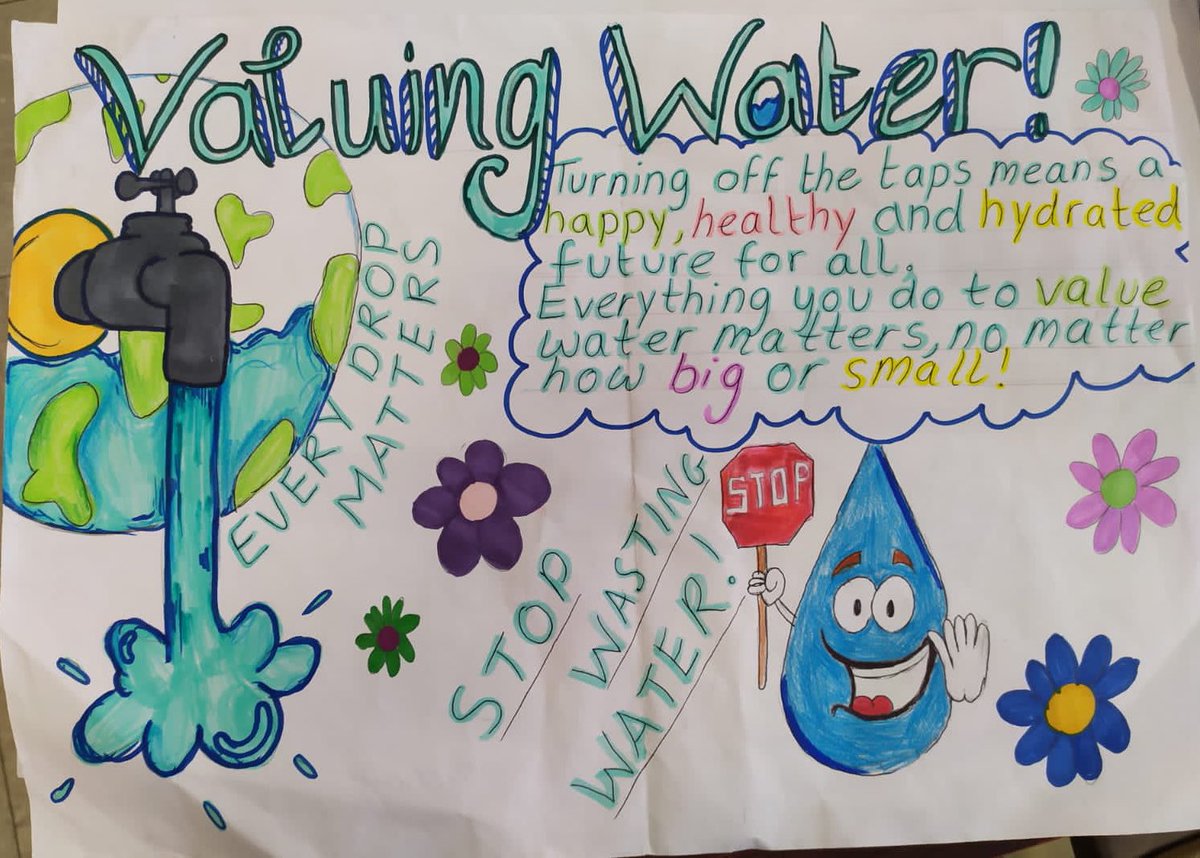 Valuing Water!
Turning off the taps means a
happy, healthy and hydrated
future for all.
Everything you do to value
water matters, no matter
how big or small!
EVERY DROP
MATTERS
STOP
WASTING
WATER!
STOP